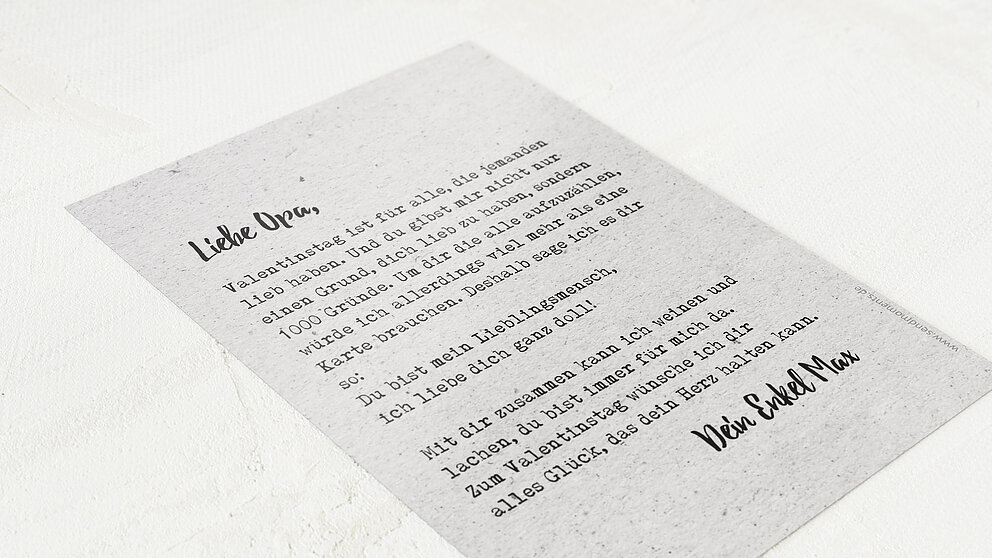 Liebe Opa,
Valentinstag ist für alle, die jemanden
lieb haben. Und du gibst mir nicht nur
einen Grund, dich lieb zu haben, sondern
1000 Gründe. Um dir die alle aufzuzählen,
würde ich allerdings viel mehr als eine
Karte brauchen. Deshalb sage ich es dir
so:
Du bist mein Lieblingsmensch,
ich liebe dich ganz doll!
Mit dir zusammen kann ich weinen und
lachen, du bist immer für mich da.
Zum Valentinstag wünsche ich dir
alles Glück, das dein Herz halten kann.
Dein Enkel Max
www.sendmoments.de